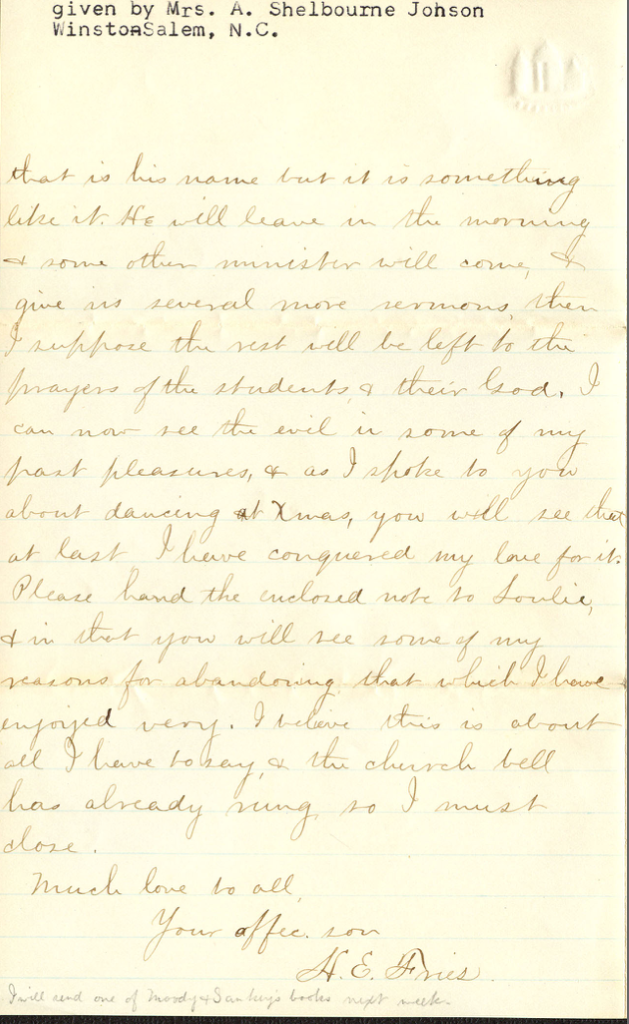 given by Mrs. A. Shelbourne Johson
WinstonSalem, N.C.
that is his name but it is something
like it. He will leave in the morning
& some other minister will come, &
give us several more sermons, then
I suppose the rest will be left to the
prayers of the students, & their God. I
can now see the evil in some of my
past pleasures, & as I spoke to you
about dancing at Xmas, you will see that
at last I have conquered my love for it.
Please hand the enclosed note to Loulie,
& in that you will see some of my
reasons for abandoning that which I have
enjoyed very. I believe this is about
all I have to say, & the church bell
has already rung so I must
close.
Much love to all,
Your affec. son
H. E. Fries.
I will send one of Moody & Sankey's books next week